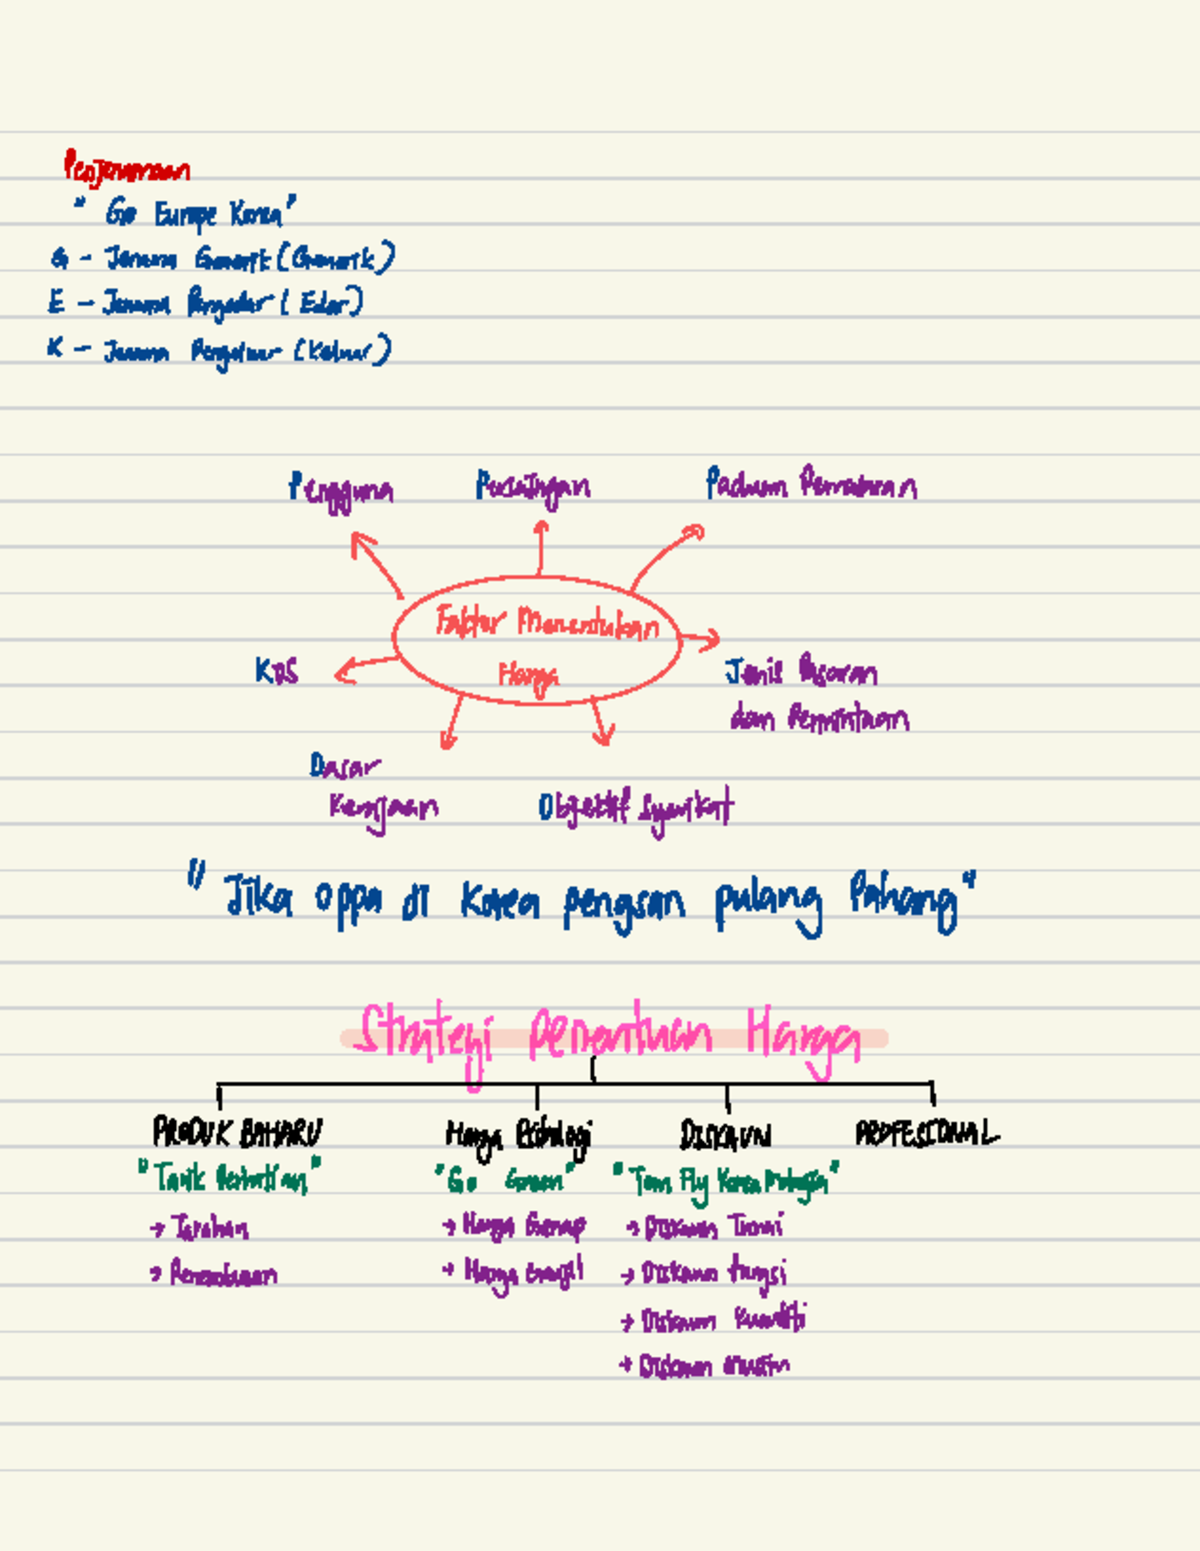 Penjenamaan
" Go Europe Korea"
G - Jenama Generik (Generik)
E - Jenama Pengedar ( Edar)
K - Jenama Pengeluar (Keluar)
Pengguna
Persaingan
Paduan Pemasaran
Faktor Menentukan
Harga
KOS
Jenis Pasaran
dan Permintaan
Dasar
Kerajaan
Objektif Syarikat
"Jika oppa di Korea pengsan pulang Pahang"
Strategi Penentuan Harga
PRODUK BAHARU
Harga Psikologi
DISKAUN
PROFESIONAL
"Tarik"
"Go Green"
"Tom Fly Korea"
→ Tarahan
→ Harga Genap
→ Diskaun Tunai
→ Harga Ganjil
→ Diskaun Fungsi
→ Diskaun Kuantiti
→ Diskaun Musim